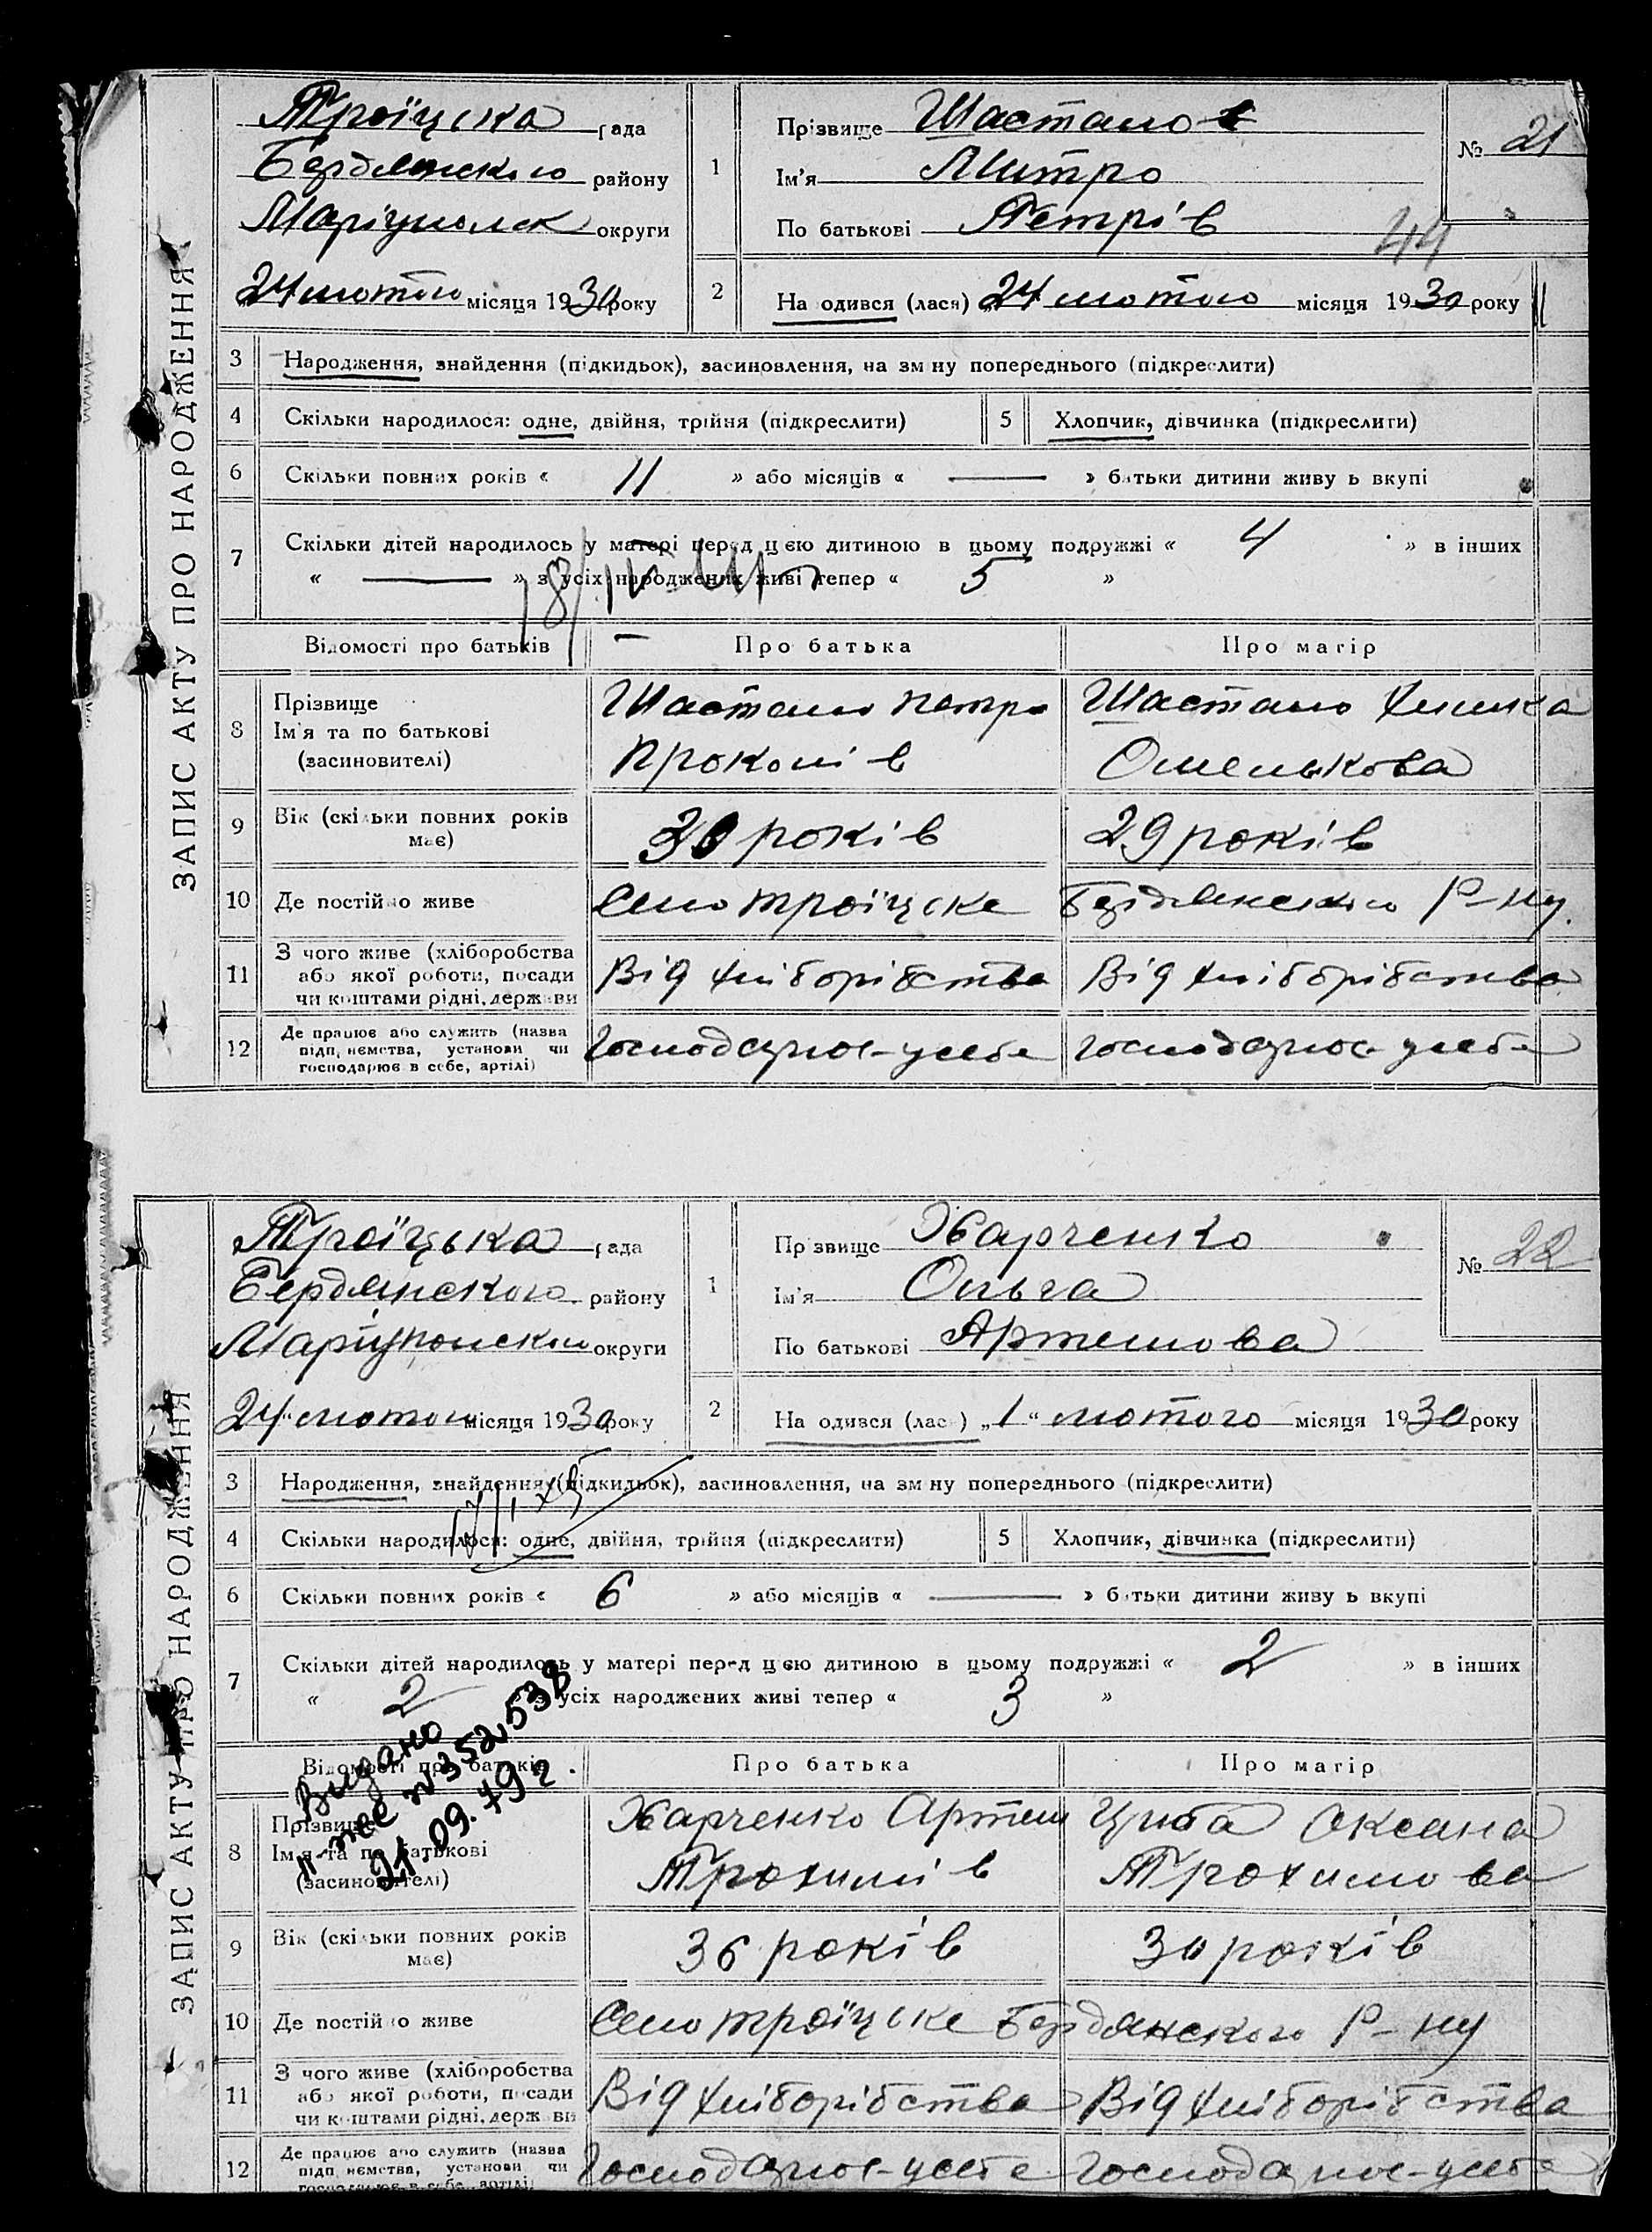 ЗАПИС АКТУ ПРО НАРОДЖЕННЯ
Троїцска рада
Бердянского району
Маріупольск округи
24 лютого місяця 1930 року
1
Прізвище Шастало
Ім'я Митро
По батькові Петрів
№ 21
44
2
На одився (лася) 24 лютого місяця 1930 року
3 Народження, знайдення (підкидьок), засиновлення, на зм ну попереднього (підкреслити)
4 Скільки народилося: одне, двійня, трійня (підкреслити) 5 Хлопчик, дівчинка (підкреслити)
6 Скільки повних років « 11 » або місяців « — » батьки дитини живу ь вкупі
7 Скільки дітей народилось у матері перед цією дитиною в цьому подружжі « 4 » в інших
« — » з усіх народжених живі тепер « 5 »
Відомості про батьків Про батька Про матір
8 Прізвище Шастало Петро Шастало
Ім'я та по батькові Прокопів Омелькова
(засиновителі)
9 Вік (скільки повних років 30 років 29 років
має)
10 Де постійно живе Село Троїцске Бердянского Р-ну
11 З чого живе (хліборобства
або якої роботи, посади Від хліборібства Від хліборібства
чи коштами рідні, держави
12 Де працює або служить (назва
підп иємства, установи чи Господарює-усебе Господарює-усебе
господарює в себе, артілі)
ЗАПИС АКТУ ПРО НАРОДЖЕННЯ
Троїцька рада
Бердянского району
Маріупольскої округи
24 лютого місяця 1930 року
1
Прізвище Харченко
Ім'я Ольга
По батькові Артемова
№ 22
2
На одився (лася) „1“ лютого місяця 1930 року
3 Народження, знайдення (підкидьок), засиновлення, на зм ну попереднього (підкреслити)
4 Скільки народилося: одне, двійня, трійня (підкреслити) 5 Хлопчик, дівчинка (підкреслити)
6 Скільки повних років « 6 » або місяців « — » батьки дитини живу ь вкупі
7 Скільки дітей народилось у матері перед цією дитиною в цьому подружжі « 2 » в інших
« 2 » з усіх народжених живі тепер « 3 »
Видано
№ 352538
21.09.79 г.
Відомості про батьків Про батька Про матір
8 Прізвище Харченко Артем Циба Оксана
Ім'я та по батькові Трохимів Трохимова
(засиновителі)
9 Вік (скільки повних років 36 років 30 років
має)
10 Де постійно живе Село Троїцске Бердянского Р-ну
11 З чого живе (хліборобства
або якої роботи, посади Від хліборібства Від хліборібства
чи коштами рідні, держави
12 Де працює або служить (назва
підп иємства, установи чи Господарює-усебе Господарює-усебе
господарює в себе, артілі)